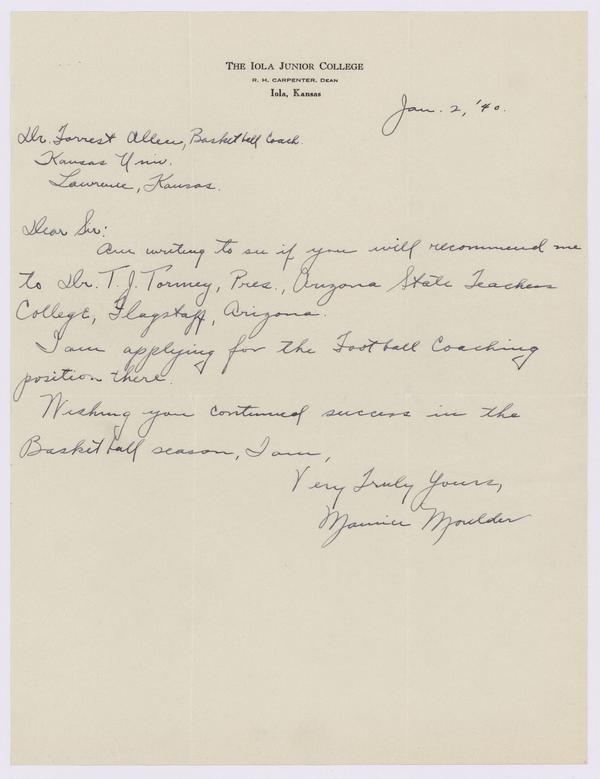 THE IOLA JUNIOR COLLEGE
R. H. CARPENTER, DEAN
Iola, Kansas
Jan. 2, '40.
Dr. Forrest Allen, Basketball Coach.
Kansas Univ.
Lawrence, Kansas.
Dear Sir:
Am writing to see if you will recommend me
to Dr. T. J. Tormey, Pres., Arizona State Teachers
College, Flagstaff, Arizona.
I am applying for the Football Coaching
position there.
Wishing you continued success in the
Basketball season, I am,
Very Truly Yours,
Maurice Moulder